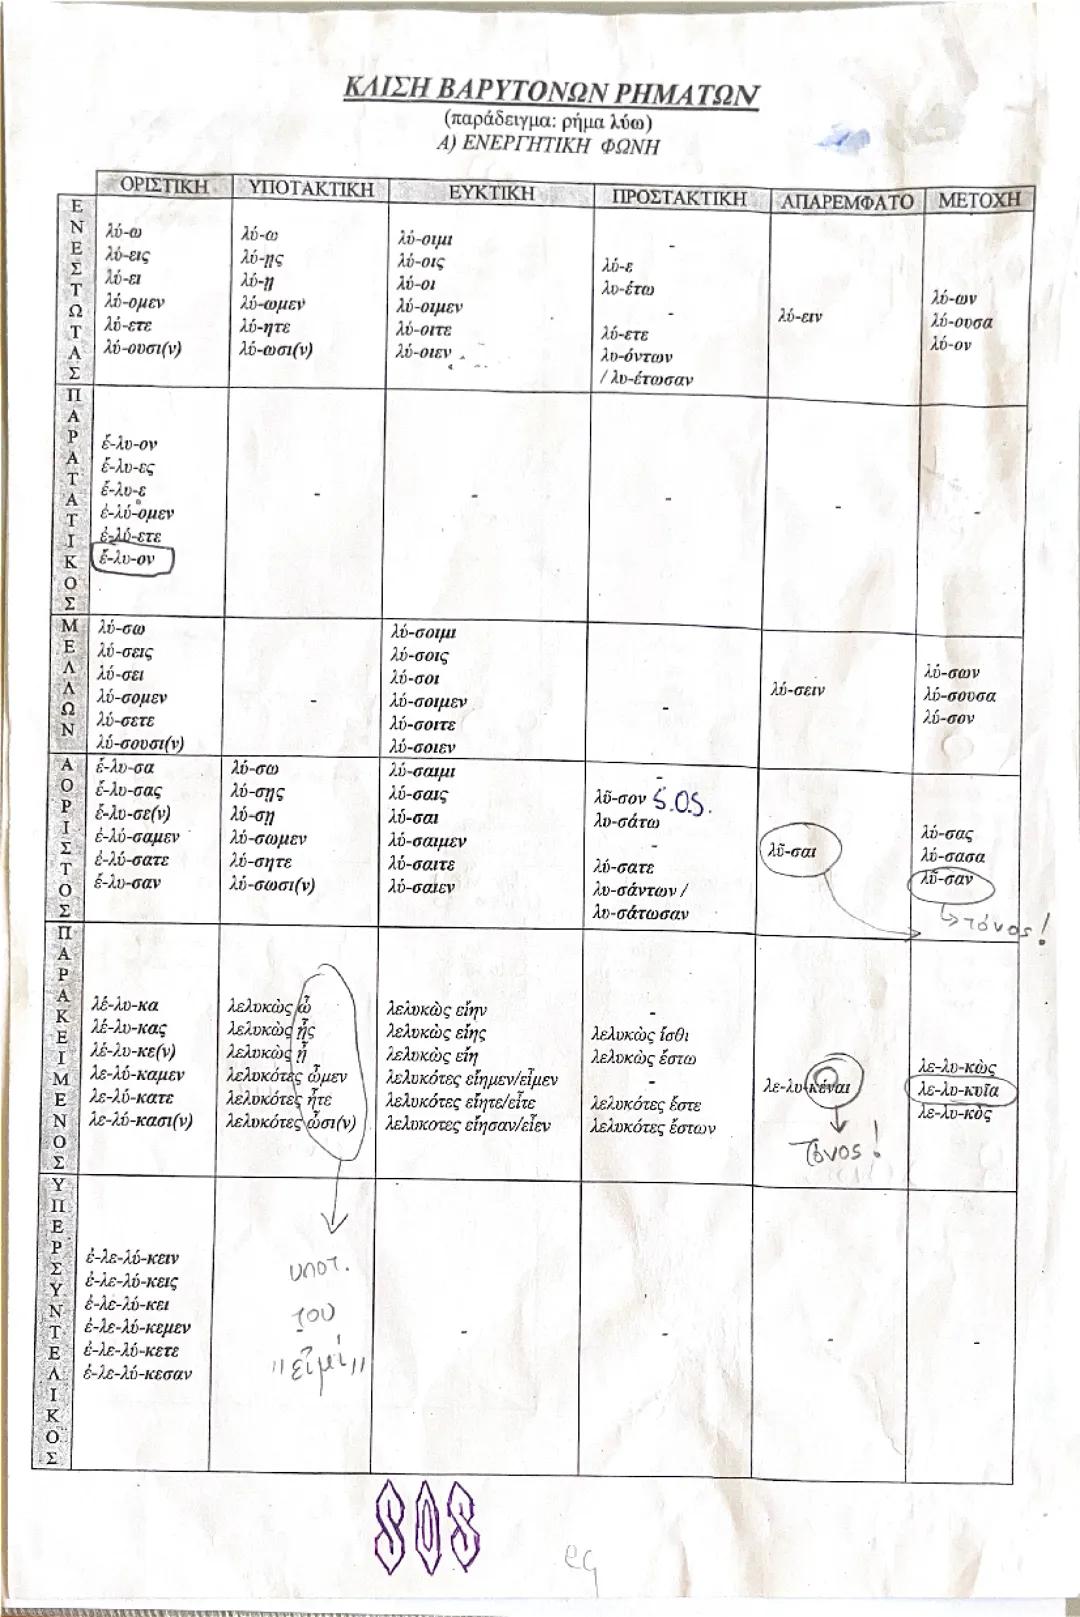 ΚΛΙΣΗ ΒΑΡΥΤΟΝΩΝ ΡΗΜΑΤΩΝ
(παράδειγμα: ρήμα λύω)
Α) ΕΝΕΡΓΗΤΙΚΗ ΦΩΝΗ
ΟΡΙΣΤΙΚΗ ΥΠΟΤΑΚΤΙΚΗ ΕΥΚΤΙΚΗ ΠΡΟΣΤΑΚΤΙΚΗ ΑΠΑΡΕΜΦΑΤΟ ΜΕΤΟΧΗ
ΕΝΕΣΤΩΤΑΣ
λύ-ω
λύ-εις
λύ-ει
λύ-ομεν
λύ-ετε
λύ-ουσι(ν)
λύ-ω
λύ-ῃς
λύ-ῃ
λύ-ωμεν
λύ-ητε
λύ-ωσι(ν)
λύ-οιμι
λύ-οις
λύ-οι
λύ-οιμεν
λύ-οιτε
λύ-οιεν
-
λύ-ε
λυ-έτω
-
λύ-ετε
λυ-όντων
/ λυ-έτωσαν
λύ-ειν
λύ-ων
λύ-ουσα
λύ-ον
ΠΑΡΑΤΑΤΙΚΟΣ
ἔ-λυ-ον
ἔ-λυ-ες
ἔ-λυ-ε
ἐ-λύ-ομεν
ἐ-λύ-ετε
ἔ-λυ-ον
-
-
-
-
-
ΜΕΛΛΩΝ
λύ-σω
λύ-σεις
λύ-σει
λύ-σομεν
λύ-σετε
λύ-σουσι(ν)
-
λύ-σοιμι
λύ-σοις
λύ-σοι
λύ-σοιμεν
λύ-σοιτε
λύ-σοιεν
-
λύ-σειν
λύ-σων
λύ-σουσα
λύ-σον
ΑΟΡΙΣΤΟΣ
ἔ-λυ-σα
ἔ-λυ-σας
ἔ-λυ-σε(ν)
ἐ-λύ-σαμεν
ἐ-λύ-σατε
ἔ-λυ-σαν
λύ-σω
λύ-σῃς
λύ-σῃ
λύ-σωμεν
λύ-σητε
λύ-σωσι(ν)
λύ-σαιμι
λύ-σαις
λύ-σαι
λύ-σαιμεν
λύ-σαιτε
λύ-σαιεν
-
λῦ-σον S.O.S.
λυ-σάτω
-
λύ-σατε
λυ-σάντων /
λυ-σάτωσαν
λῦ-σαι
λύ-σας
λύ-σασα
λῦ-σαν
τόνος!
ΠΑΡΑΚΕΙΜΕΝΟΣ
λέ-λυ-κα
λέ-λυ-κας
λέ-λυ-κε(ν)
λε-λύ-καμεν
λε-λύ-κατε
λε-λύ-κασι(ν)
λελυκὼς ὦ
λελυκὼς ᾖς
λελυκὼς ᾖ
λελυκότες ὦμεν
λελυκότες ἦτε
λελυκότες ὦσι(ν)
λελυκὼς εἴην
λελυκὼς εἴης
λελυκὼς εἴη
λελυκότες εἴημεν/εἶμεν
λελυκότες εἴητε/εἶτε
λελυκοτες εἴησαν/εἶεν
-
λελυκὼς ἴσθι
λελυκὼς ἔστω
-
λελυκότες ἔστε
λελυκότες ἔστων
λε-λυ-κέναι
Τόνος!
λε-λυ-κὼς
λε-λυ-κυῖα
λε-λυ-κὸς
ΥΠΕΡΣΥΝΤΕΛΙΚΟΣ
ἐ-λε-λύ-κειν
ἐ-λε-λύ-κεις
ἐ-λε-λύ-κει
ἐ-λε-λύ-κεμεν
ἐ-λε-λύ-κετε
ἐ-λε-λύ-κεσαν
υποτ.
του
"εἰμί"
-
-
-
-
SOS